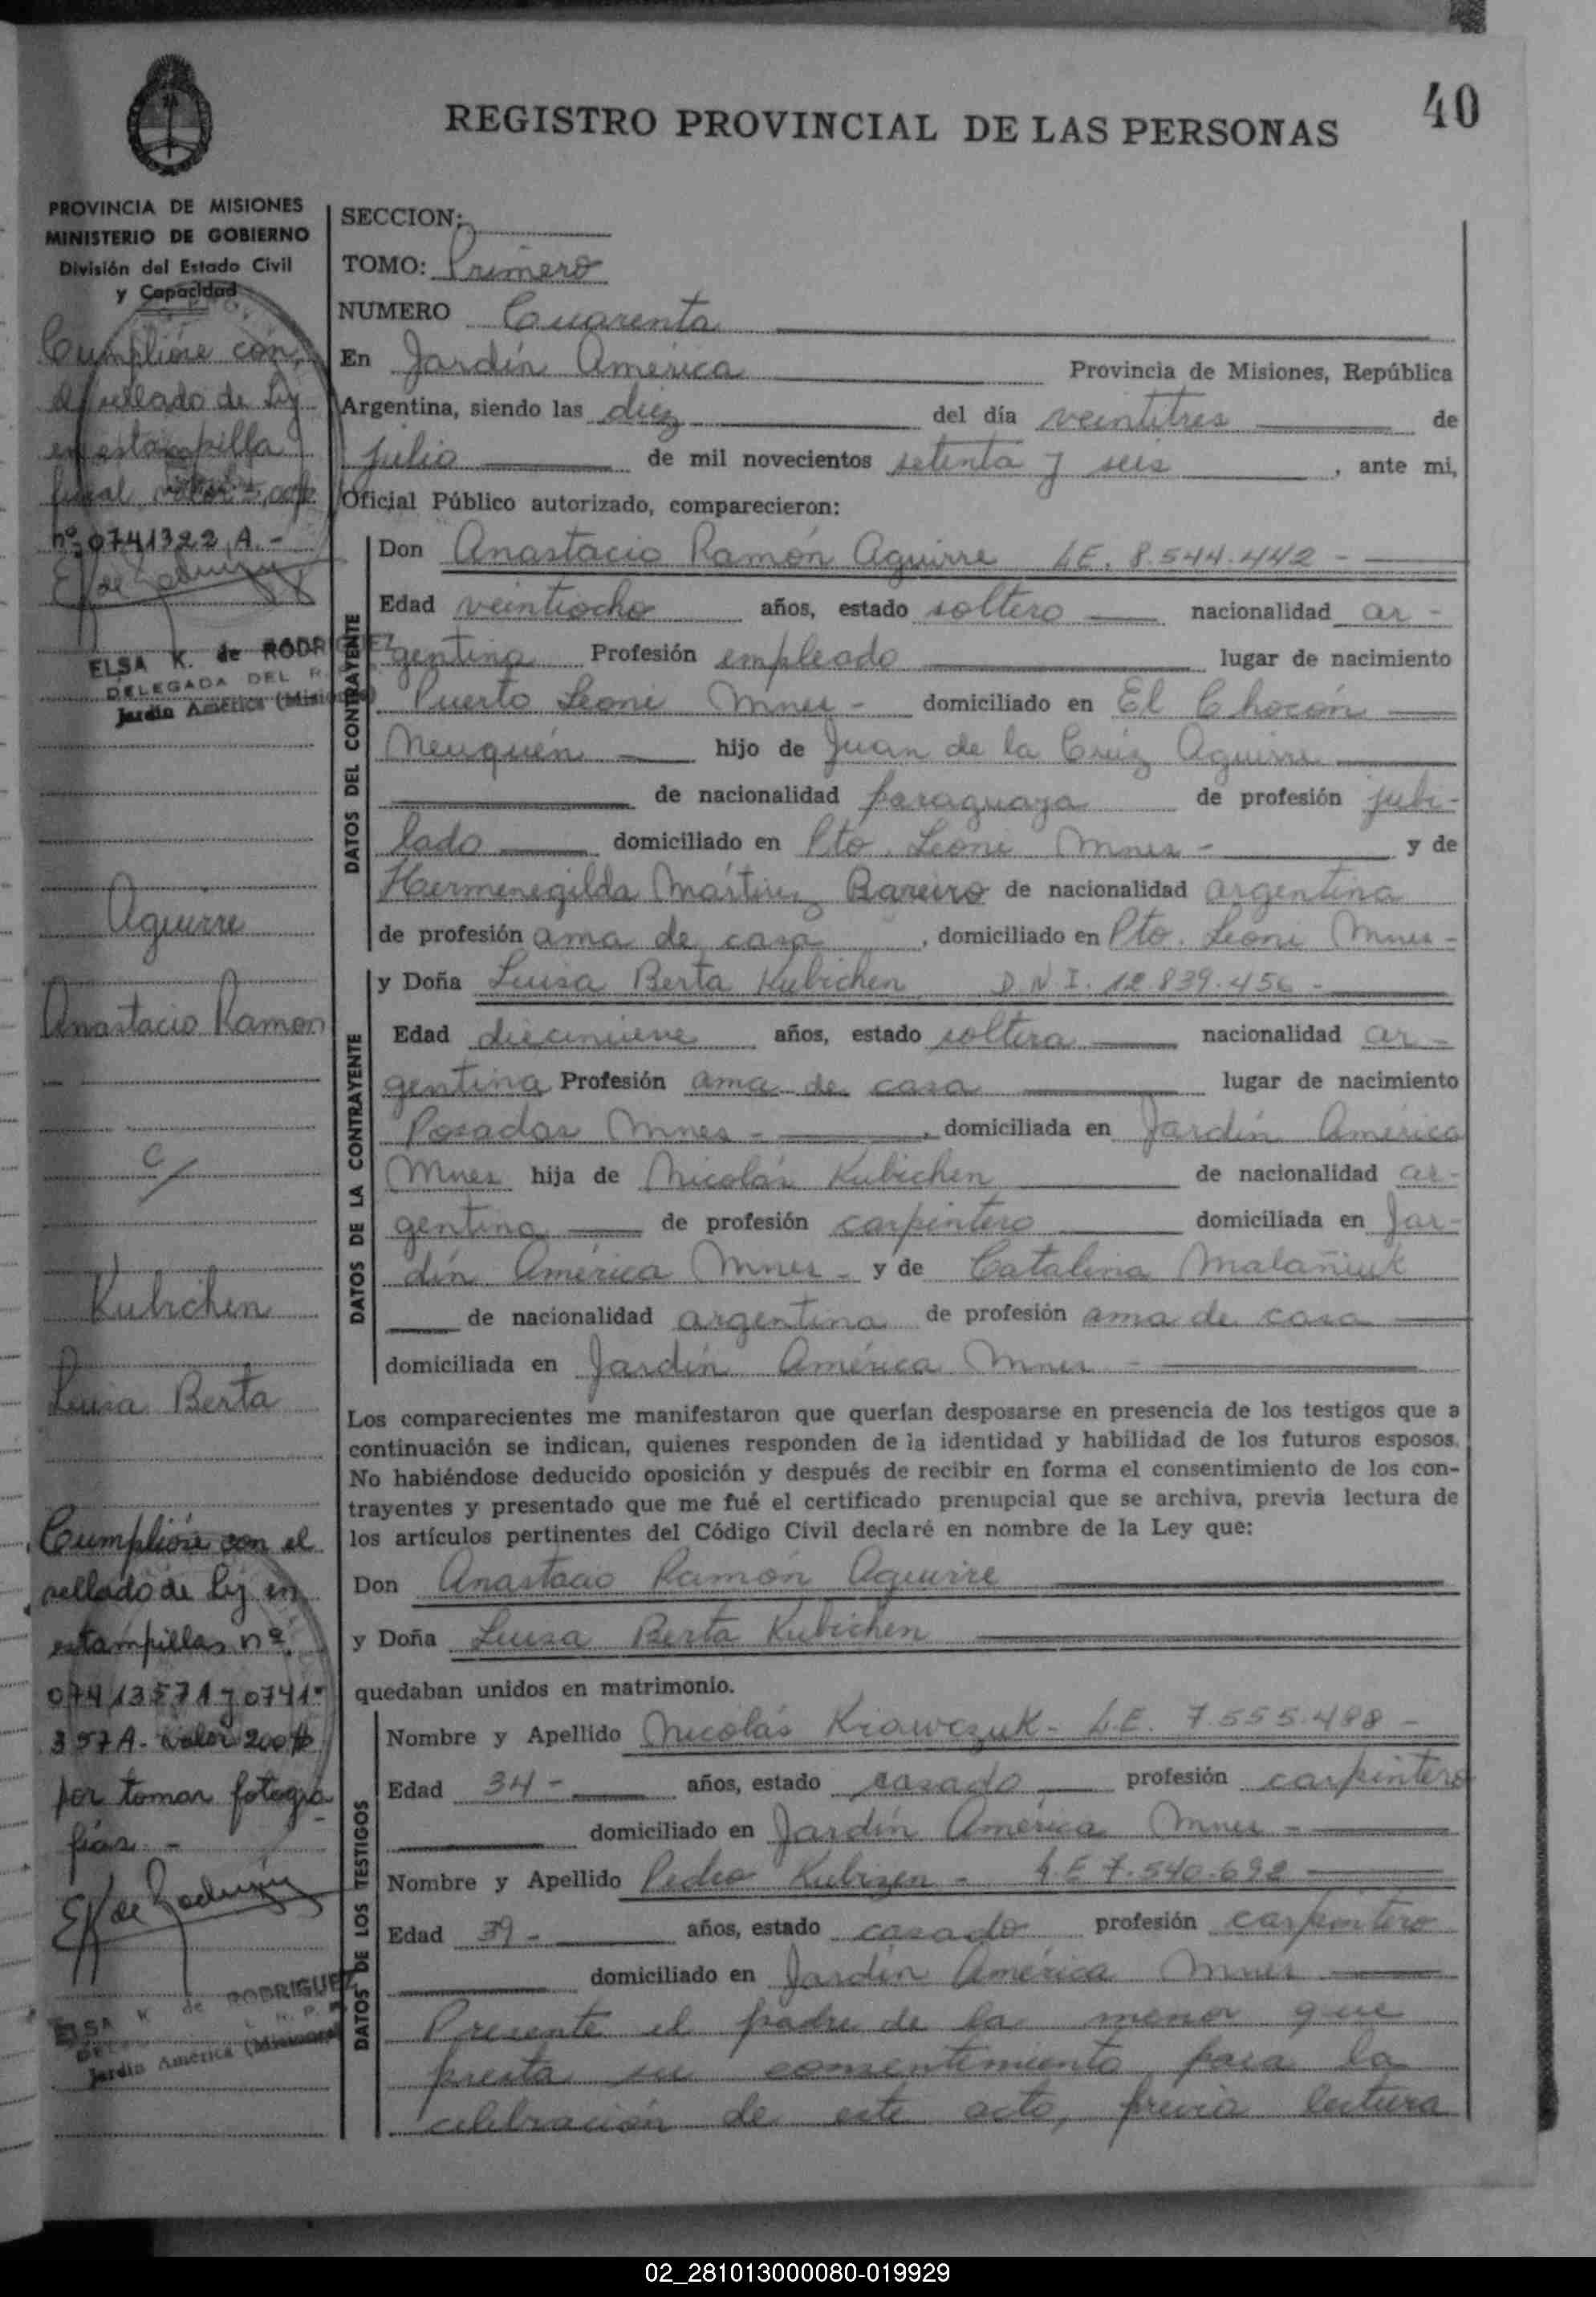 40
REGISTRO PROVINCIAL DE LAS PERSONAS
PROVINCIA DE MISIONES
MINISTERIO DE GOBIERNO
División del Estado Civil
y Capacidad
Cumplióse con
el sellado de Ley
en estampilla
fiscal valor
nº 0741322 A.-
ELSA K. de RODRIGUEZ
DELEGADA DEL R.
Jardín América (Misiones)
Aguirre
Anastacio Ramon
c/
Kubichen
Luisa Berta
Cumplióse con el
sellado de Ley en
estampillas nº
07413571 y 0741-
357 A- Valor 200 $
por tomar fotogra
fías.-
ELSA K. de RODRIGUEZ
Jardín América (Misiones)
SECCION:
TOMO: Primero
NUMERO Cuarenta
En Jardín América Provincia de Misiones, República
Argentina, siendo las diez del día veintitres de
julio de mil novecientos setenta y seis, ante mi,
Oficial Público autorizado, comparecieron:
DATOS DEL CONTRAYENTE
Don Anastacio Ramón Aguirre LE. 8.544.442 -
Edad veintiocho años, estado soltero nacionalidad ar-
gentina Profesión empleado lugar de nacimiento
Puerto Leoni Mnes - domiciliado en El Chocón
Neuquén hijo de Juan de la Cruz Aguirre
de nacionalidad paraguaya de profesión jubi-
lado domiciliado en Pto. Leoni Mnes - y de
Hermenegilda Mártirez Bareiro de nacionalidad argentina
de profesión ama de casa, domiciliado en Pto. Leoni Mnes -
DATOS DE LA CONTRAYENTE
y Doña Luisa Berta Kubichen D.N.I. 12.839.456 -
Edad diecinueve años, estado soltera nacionalidad ar-
gentina Profesión ama de casa lugar de nacimiento
Posadas Mnes -, domiciliada en Jardín América
Mnes hija de Nicolás Kubichen de nacionalidad ar-
gentina de profesión carpintero domiciliada en Jar-
dín América Mnes - y de Catalina Malañiuk
de nacionalidad argentina de profesión ama de casa
domiciliada en Jardín América Mnes -
Los comparecientes me manifestaron que querían desposarse en presencia de los testigos que a
continuación se indican, quienes responden de la identidad y habilidad de los futuros esposos.
No habiéndose deducido oposición y después de recibir en forma el consentimiento de los con-
trayentes y presentado que me fué el certificado prenupcial que se archiva, previa lectura de
los artículos pertinentes del Código Civil declaré en nombre de la Ley que:
Don Anastacio Ramón Aguirre
y Doña Luisa Berta Kubichen
quedaban unidos en matrimonio.
DATOS DE LOS TESTIGOS
Nombre y Apellido Nicolás Krawczuk - L.E. 7.555.488 -
Edad 34 - años, estado casado profesión carpintero
domiciliado en Jardín América Mnes -
Nombre y Apellido Pedro Kubizen - L.E 7.540.692
Edad 39 - años, estado casado profesión carpintero
domiciliado en Jardín América Mnes
Presente el padre de la menor que
presta su consentimiento para la
celebración de este acto, previa lectura
02_281013000080-019929